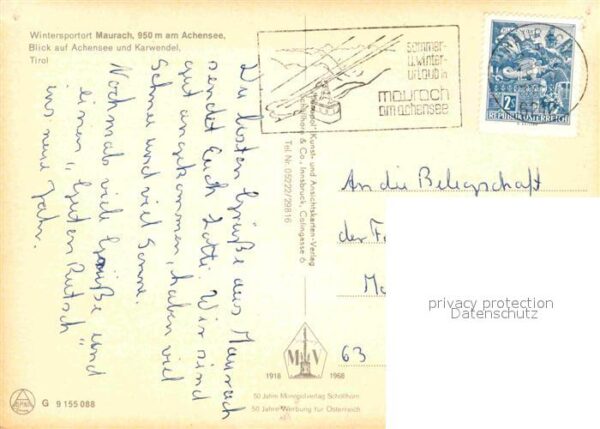 Wintersportort Maurach, 950 m am Achensee,
Blick auf Achensee und Karwendel,
Tirol
sommer-
u.winter-
urlaub in
maurach
am achensee
2 S
REPUBLIK ÖSTERREICH
Die besten Grüße aus Maurach
sendet Euch Lotti. Wir sind
gut angekommen, haben viel
Schnee und viel Sonne.
Nochmals viele Grüße und
einen "Guten Rutsch"
ins neue Jahr.
Monopol Kunst- und Ansichtskarten-Verlag
Schöllhorn & Co., Innsbruck, Colingasse 6
Tel. Nr. 05222/29816
An die Belegschaft
der
63
privacy protection
Datenschutz
M V
1918 1968
50 Jahre Monopolverlag Schöllhorn
50 Jahre Werbung für Österreich
G 9 155 088